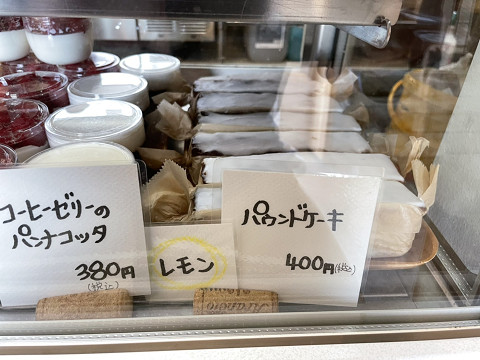 コーヒーゼリーの
パンナコッタ
380円
(税込)
レモン
パウンドケーキ
400円(税込)